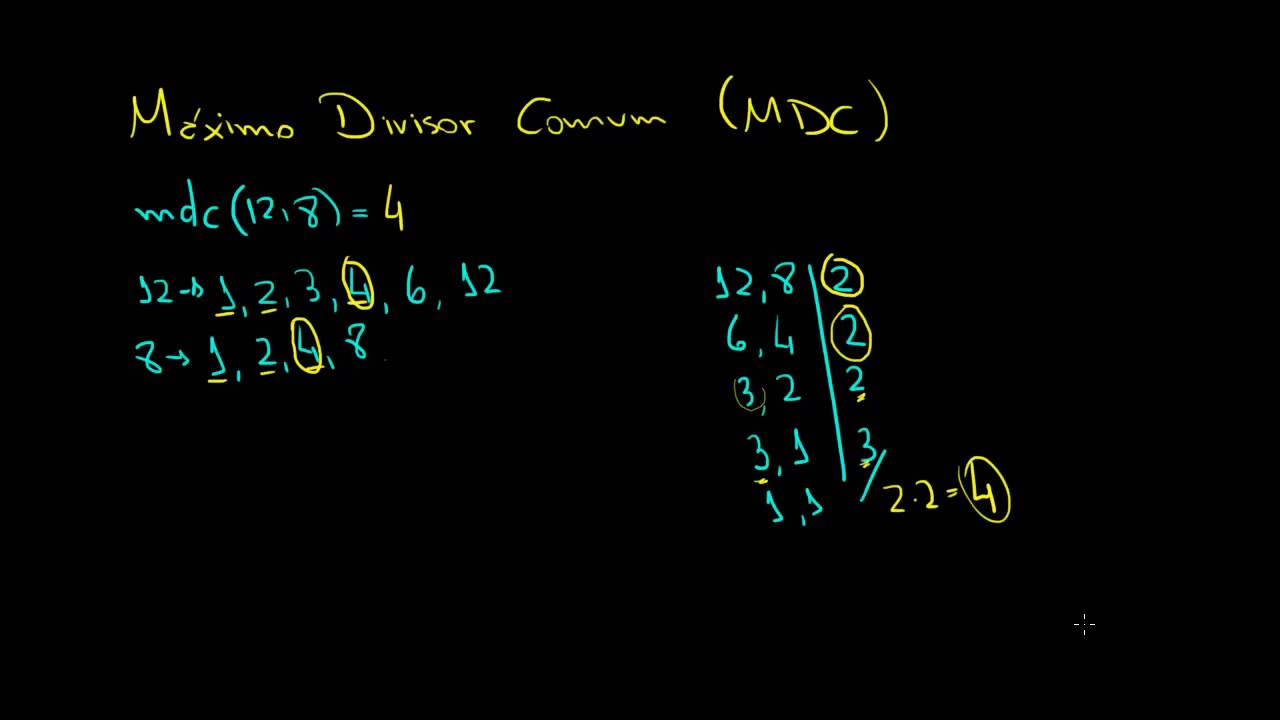 Máximo Divisor Comum (MDC)
mdc(12,8) = 4
12→ 1, 2, 3, 4, 6, 12
8→ 1, 2, 4, 8
12, 8 | 2
6, 4 | 2
3, 2 | 2
3, 1 | 3
1, 1 / 2·2 = 4